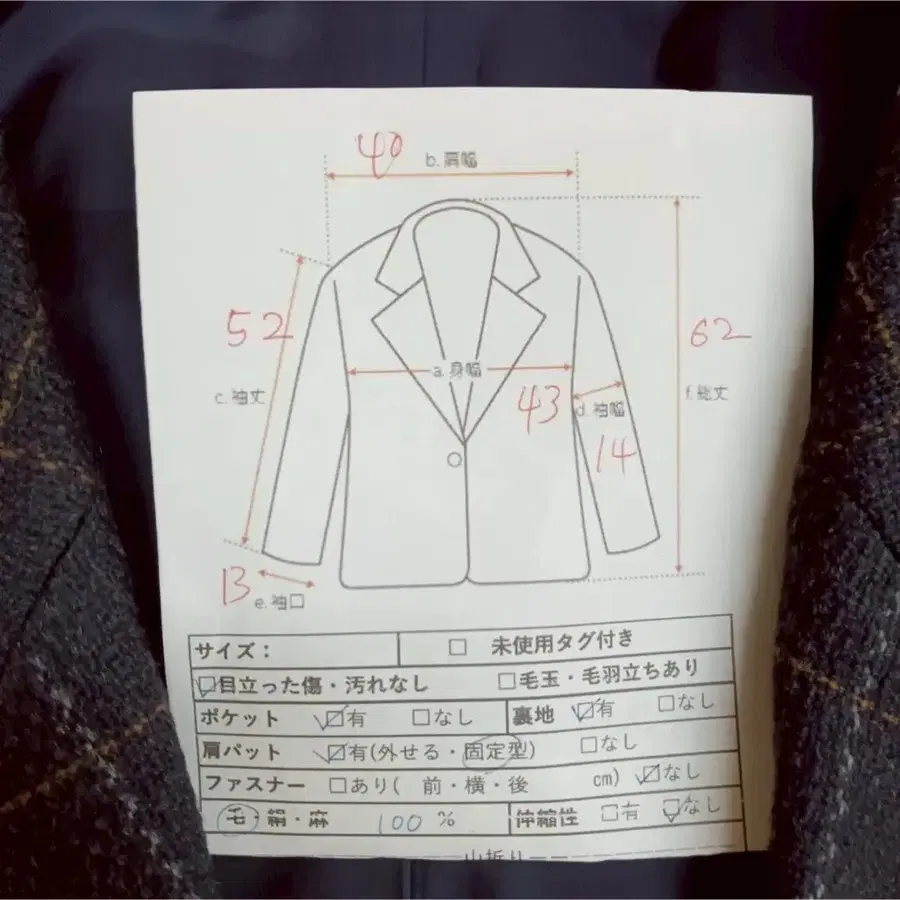 40
b. 肩幅
52
62
a. 身幅
c. 袖丈
43
d. 袖幅
f. 総丈
14
13
e. 袖口
サイズ： □ 未使用タグ付き
☑目立った傷・汚れなし □毛玉・毛羽立ちあり
ポケット ☑有 □なし 裏地 ☑有 □なし
肩パット ☑有(外せる・固定型) □なし
ファスナー □あり( 前・横・後 cm) ☑なし
毛・絹・麻 100 % 伸縮性 □有 ☑なし
山折り